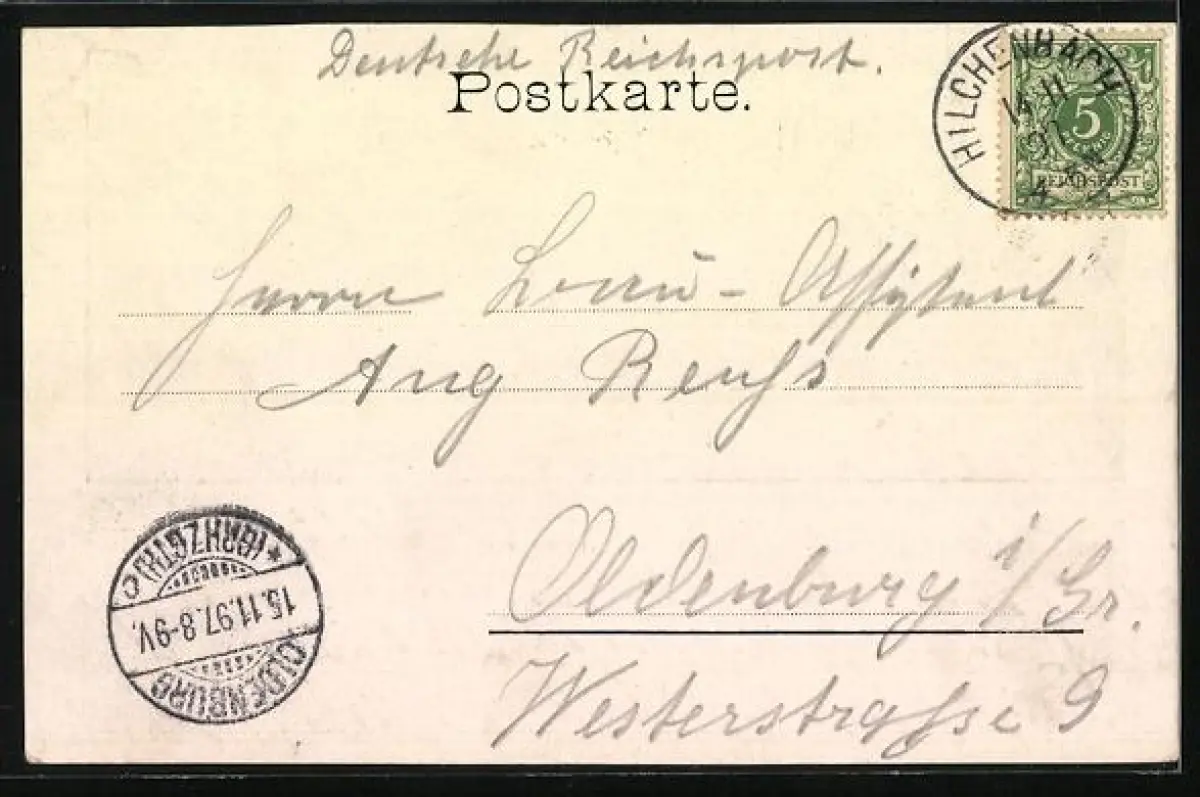 Deutsche Reichspost.
Postkarte.
HILCHENBACH
14 11
97
5
REICHSPOST
Herrn - Assistent
Aug Reuss
Oldenburg i/Gr.
Westerstrasse 9
OLDENBURG
15.11.97. 8-9V.
* (GRHZGTH.) C